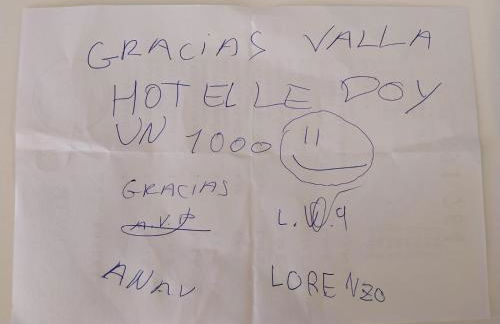 GRACIAS VALLA
HOTEL LE DOY
UN 1000
GRACIAS
ANAV LORENZO